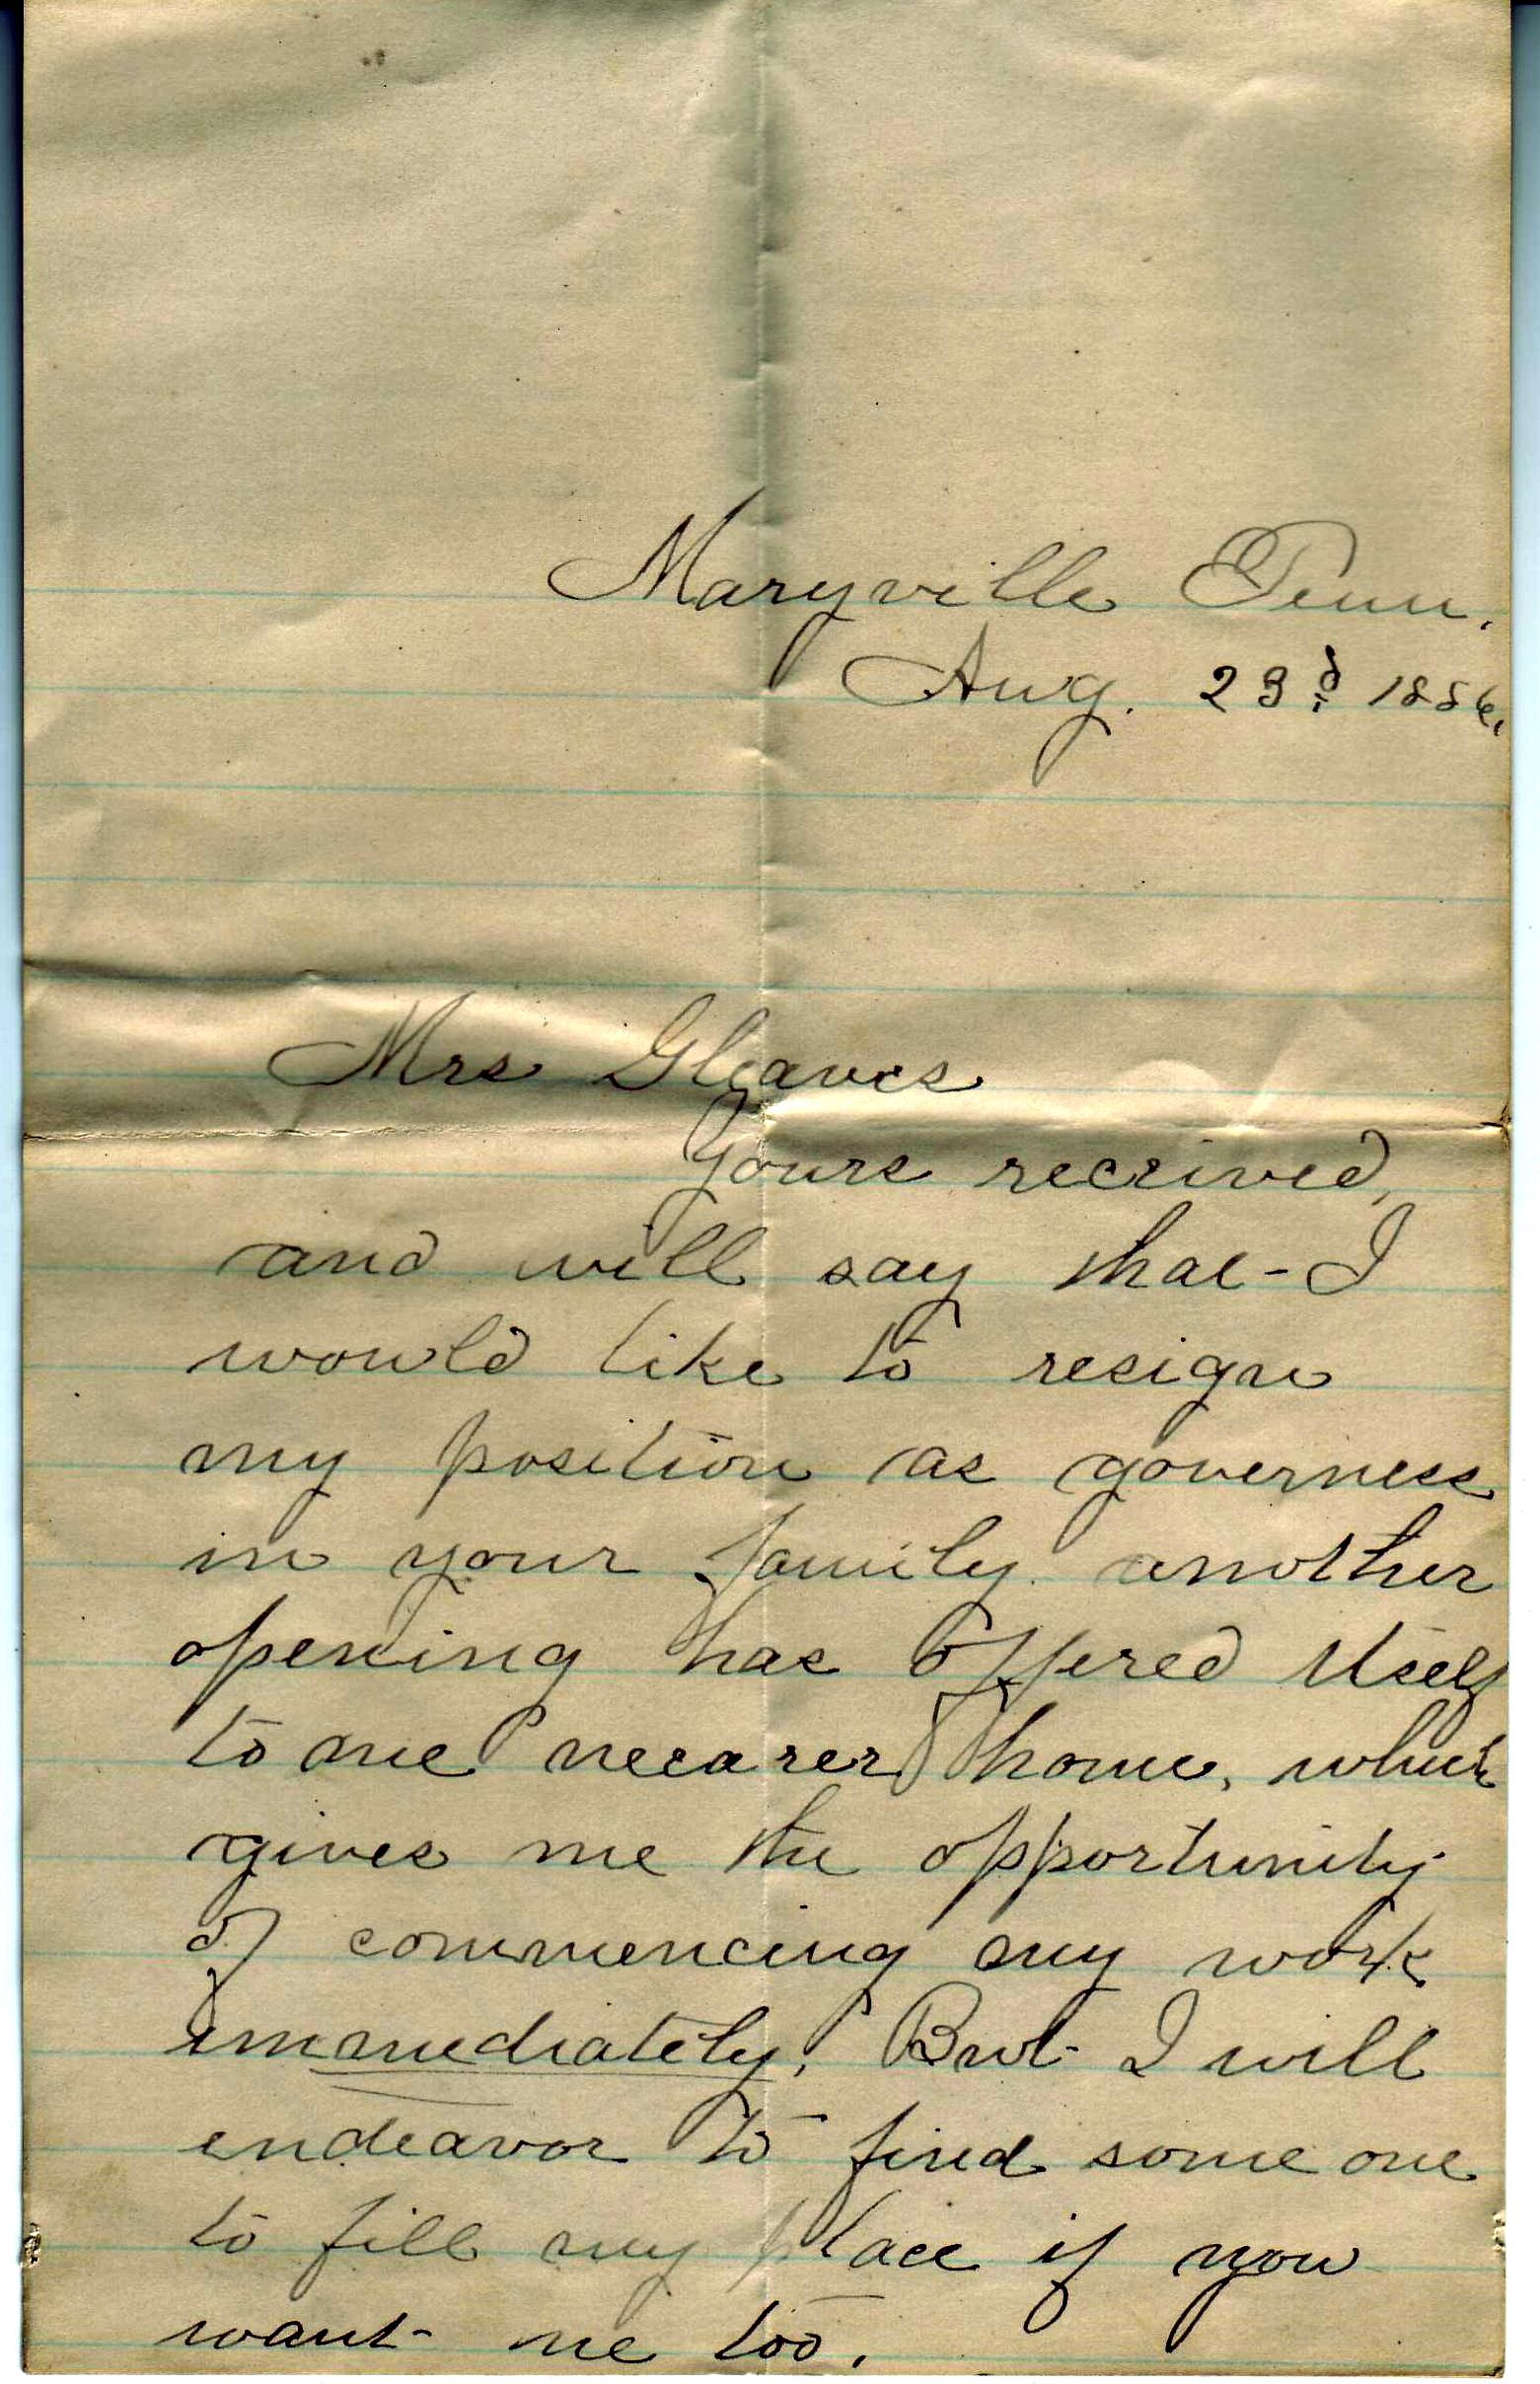 Maryville Tenn.
Aug. 23d 1886.
Mrs Gleaves
Yours received,
and will say that I
would like to resign
my position as governess
in your family. another
opening has offered itself
to me nearer home, which
gives me the opportunity
of commencing my work
immediately. But I will
endeavor to find some one
to fill my place if you
want me too.